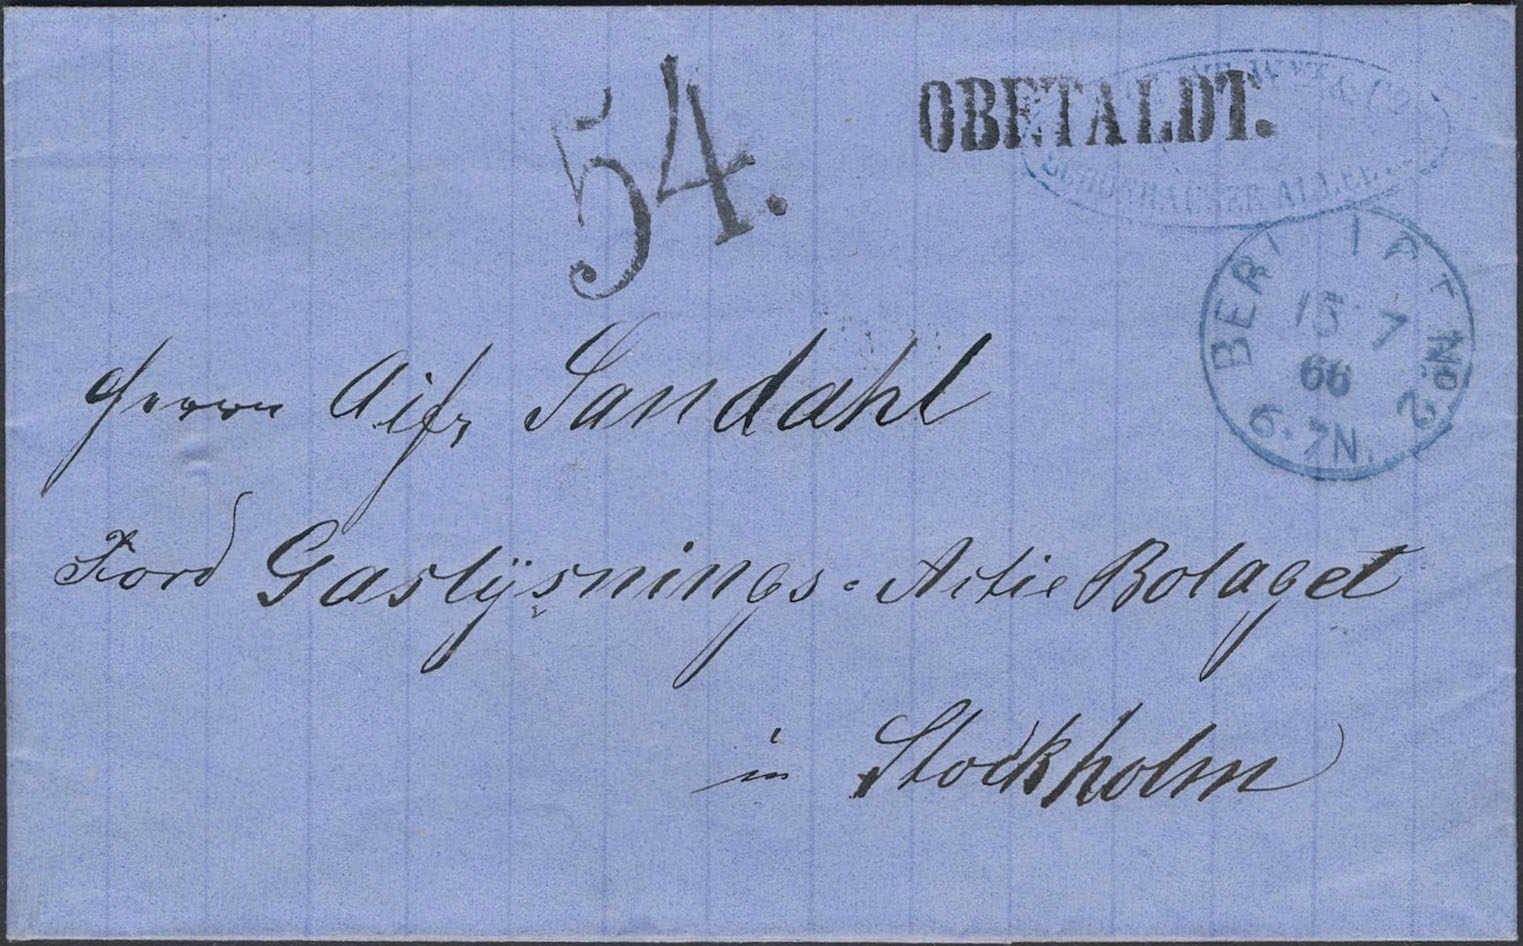 54.
OBETALDT.
WYK & CO
SCHÖNHAUSER ALLEE
BERLIN P.E. No 2
13 7
66
6-7N.
Herrn Aifr Sandahl
Gaslÿsnings-Actie Bolaget
in Stockholm